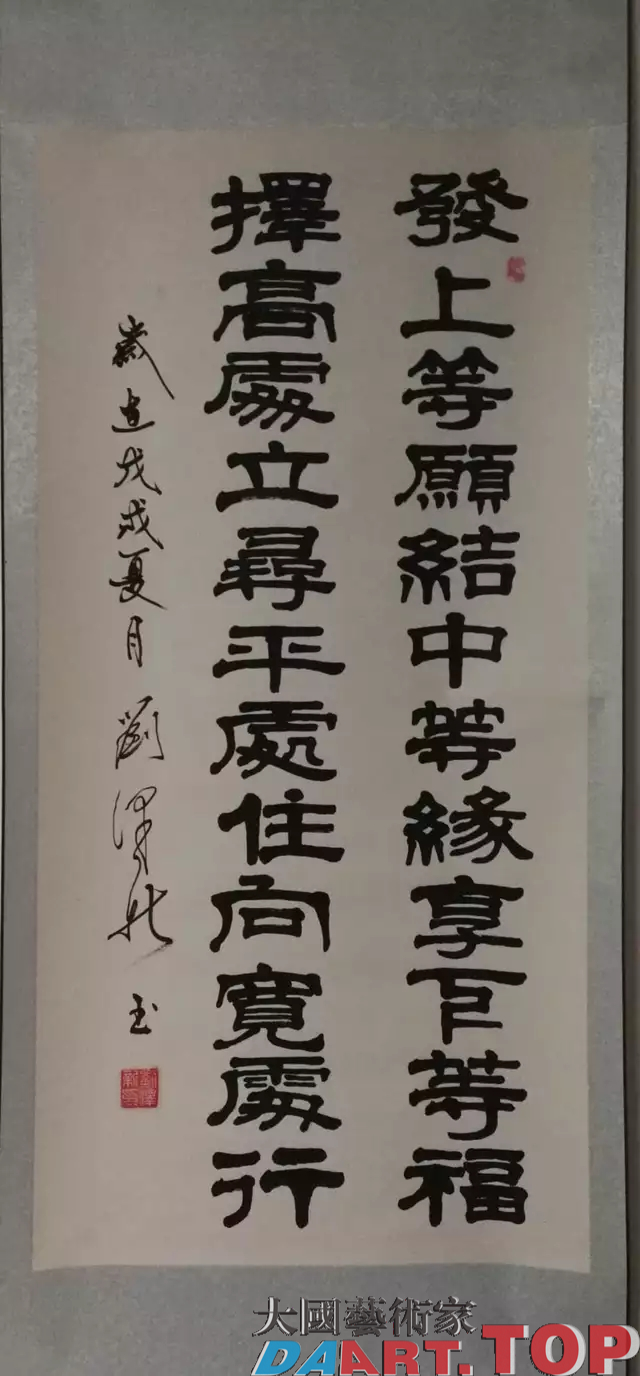 發上等願結中等緣享下等福
擇高處立尋平處住向寬處行
歲在戊戌夏月劉澤
大國藝術家
DAART.TOP